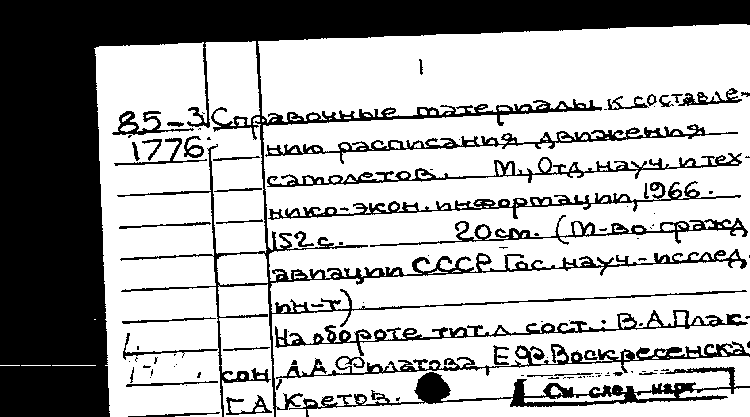 1
85-3 Справочные материалы к составле-
1776. нию расписания движения
самолетов. М., Отд. науч. и тех-
нико-экон. информации, 1966.
152 с. 20см. (М-во гражд
авиации СССР. Гос. науч.-исслед.
ин-т).
На обороте тит. л. сост.: В.А.Плак-
сон, А.А.Филатова, Е.Ф.Воскресенская
Г.А Кретов.
См. след. карт.